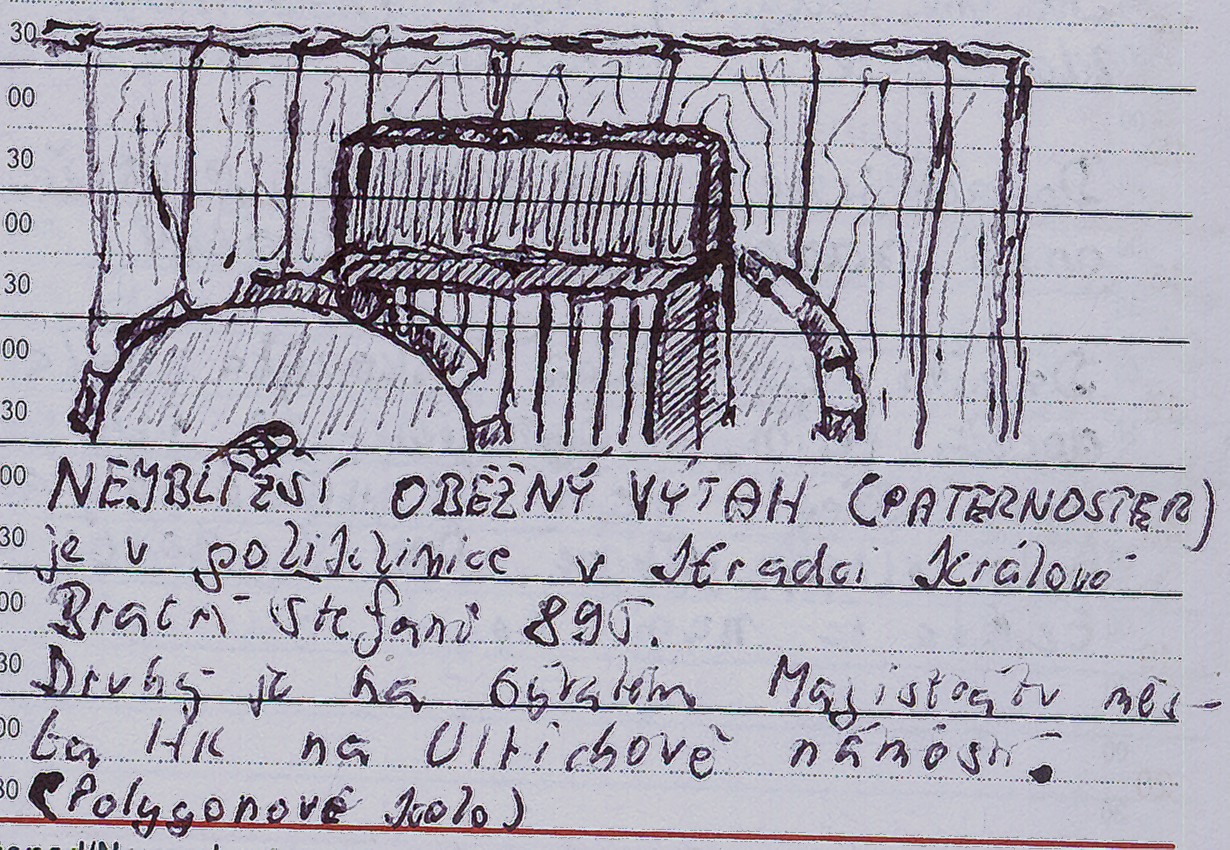 30
00
30
00
30
00
30
00 NEJBLIŽŠÍ OBĚŽNÝ VÝTAH (PATERNOSTER)
30 je v poliklinice v Hradci Králové
00 Bratří Štefanů 895.
30 Druhý je na bývalém Magistrátu měs-
00 ta HK na Ulrichově náměstí.
30 (Polygonové kolo)